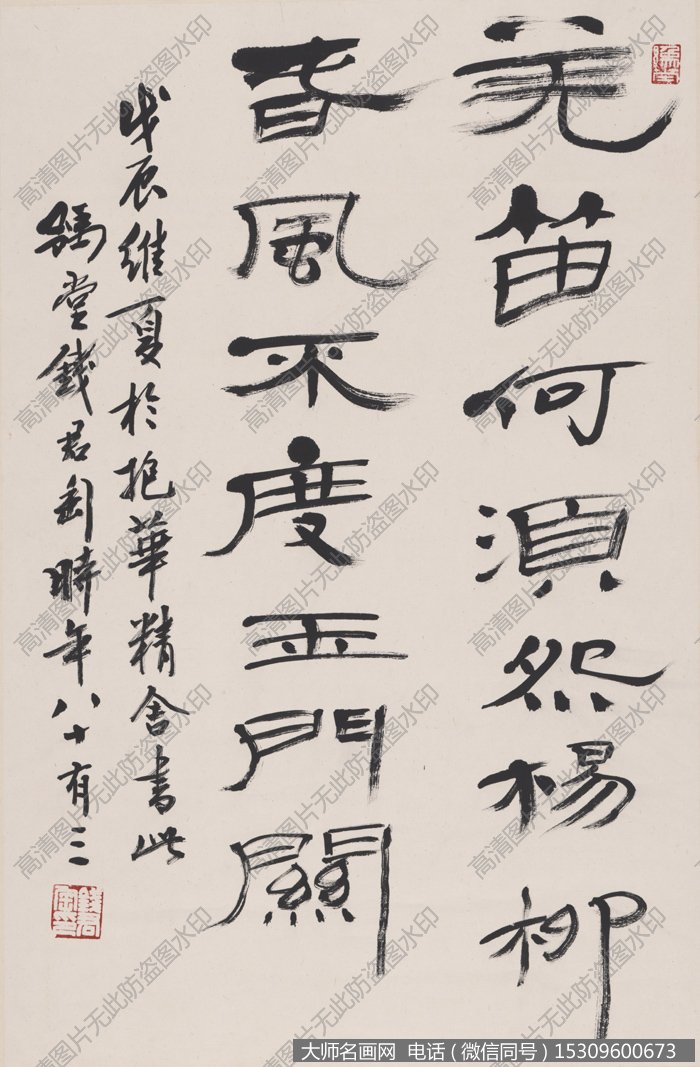 羌笛何須怨楊柳
春風不度玉門關
戊辰維夏於抱華精舍書此
錢君匋時年八十有三
高清图片无此防盗图水印
大师名画网 电话（微信同号）15309600673